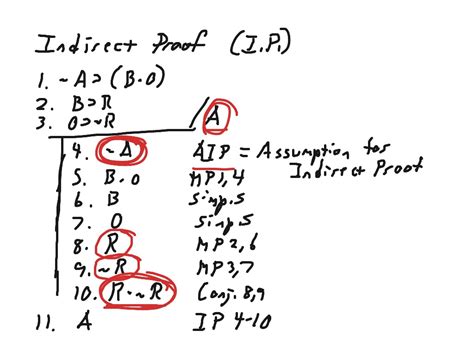 Indirect Proof (I.P.)
1. ~A ⊃ (B·O)
2. B ⊃ R
3. O ⊃ ~R / A
4. ~A AIP = Assumption for Indirect Proof
5. B·O MP 1,4
6. B Simp. 5
7. O Simp. 5
8. R MP 2,6
9. ~R MP 3,7
10. R·~R Conj. 8,9
11. A IP 4-10